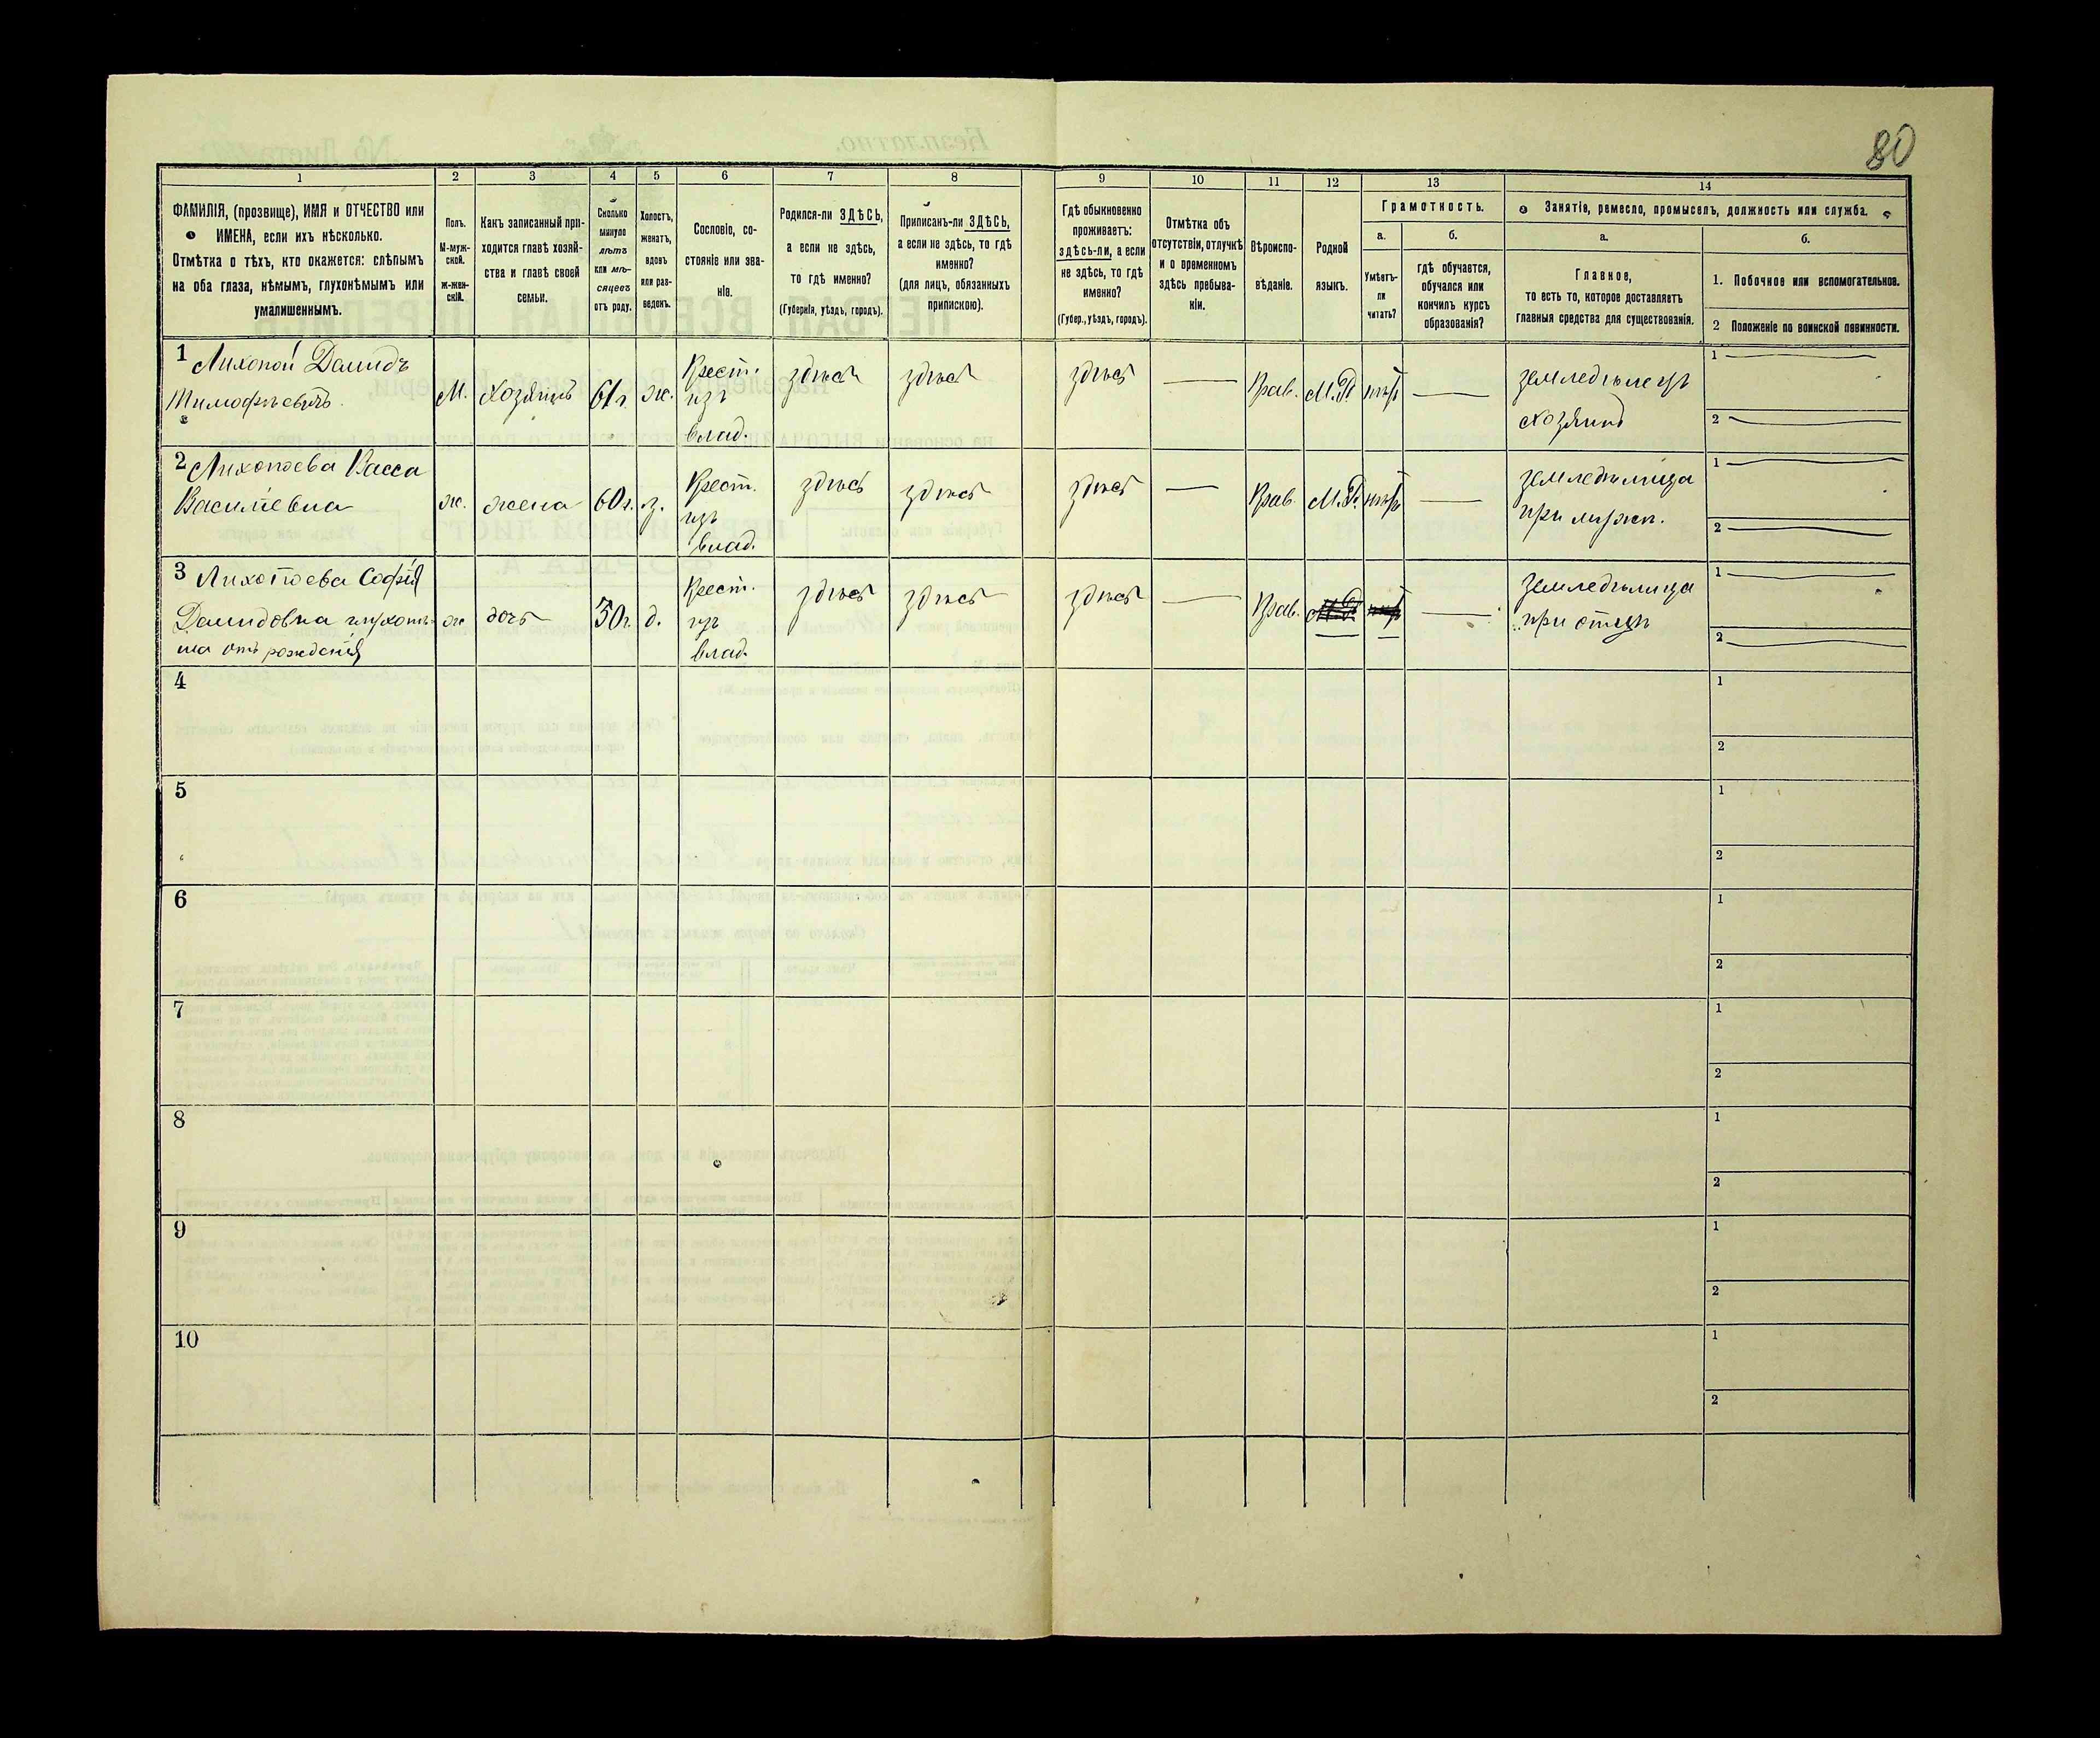 80
1
2
3
4
5
6
7
8
9
10
11
12
13
14
ФАМИЛІЯ, (прозвище), ИМЯ и ОТЧЕСТВО или
ИМЕНА, если ихъ нѣсколько.
Отмѣтка о тѣхъ, кто окажется: слѣпымъ
на оба глаза, нѣмымъ, глухонѣмымъ или
умалишеннымъ.
Полъ.
М-муж-
ской.
ж-жен-
скій.
Какъ записанный при-
ходится главѣ хозяй-
ства и главѣ своей
семьи.
Сколько
минуло
лѣтъ
или мѣ-
сяцевъ
отъ роду.
Холостъ,
женатъ,
вдовъ
или раз-
веденъ.
Сословіе, со-
стояніе или зва-
ніе.
Родился-ли ЗДѢСЬ,
а если не здѣсь,
то гдѣ именно?
(Губернія, уѣздъ, городъ).
Приписанъ-ли ЗДѢСЬ,
а если не здѣсь, то гдѣ
именно?
(для лицъ, обязанныхъ
припискою).
Гдѣ обыкновенно
проживаетъ:
здѣсь-ли, а если
не здѣсь, то гдѣ
именно?
(Губер., уѣздъ, городъ).
Отмѣтка объ
отсутствіи, отлучкѣ
и о временномъ
здѣсь пребыва-
ніи.
Вѣроиспо-
вѣданіе.
Родной
языкъ.
Грамотность.
а.
Умѣетъ-
ли
читать?
б.
гдѣ обучается,
обучался или
кончилъ курсъ
образованія?
Занятіе, ремесло, промыселъ, должность или служба.
а.
Главное,
то есть то, которое доставляетъ
главныя средства для существованія.
б.
1. Побочное или вспомогательное.
2 Положеніе по воинской повинности.
1 Лихопой Демидъ
Тимофѣевичъ
М.
хозяинъ
61 г.
ж.
Крест.
изъ
влад.
здѣсь
здѣсь
здѣсь
Прав.
М.Р.
нѣтъ
земледѣлецъ
хозяинъ
1
2
2 Лихопоева Васса
Василіевна
ж.
жена
60 г.
з.
Крест.
изъ
влад.
здѣсь
здѣсь
здѣсь
Прав.
М.Р.
нѣтъ
земледѣлица
при мужѣ.
1
2
3 Лихопоева Софія
Демидовна глухонѣ-
ма отъ рожденія
ж
дочь
30 г.
д.
Крест.
изъ
влад.
здѣсь
здѣсь
здѣсь
Прав.
земледѣлица
при отцѣ
1
2
4
1
2
5
1
2
6
1
2
7
1
2
8
1
2
9
1
2
10
1
2